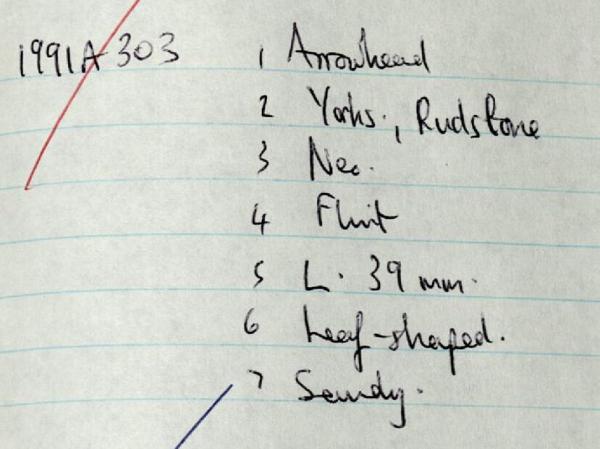 1991A303 1 Arrowhead
2 Yorks., Rudstone
3 Neo.
4 Flint
5 L. 39 mm.
6 Leaf-shaped.
7